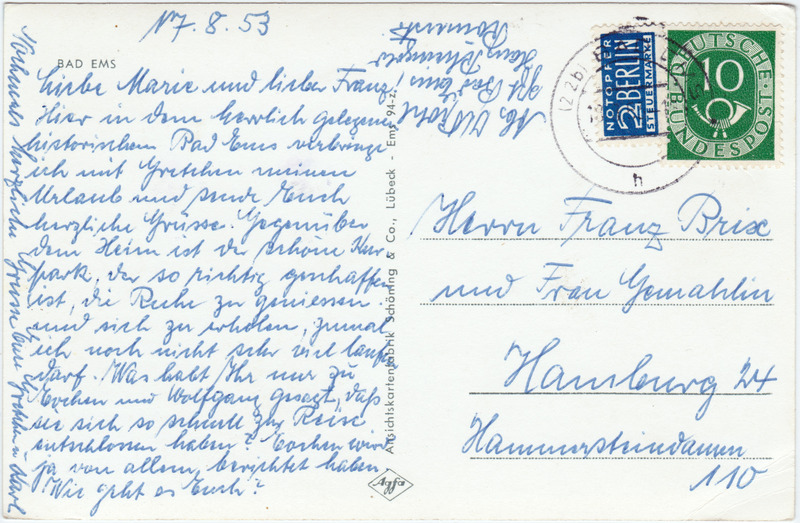 17.8.53
BAD EMS
Liebe Marie und lieber Franz,
Hier in dem herrlich gelegenen
historischen Bad Ems verbringe
ich mit Gretchen meinen
Urlaub und sende Euch
herzliche Grüsse. Gegenüber
dem Heim ist der schöne Kur
park, der so richtig geschaffen
ist, die Ruhe zu geniessen
und sich zu erholen, zumal
ich noch nicht sehr viel laufen
darf. Was habt Ihr nur zu
Lochen und Wolfgang gesagt, daß
sie sich so schnell zur Reise
entschlossen haben? Lochen wird
ja von allem berichtet haben
Wie geht es Euch?
Nochmals herzliche Grüsse Eure Gretchen u. Karl
Bad Ems
Haus
Ansichtskartenfabrik Schöning & Co., Lübeck - Ems 94-z
Agfa
NOTOPFER
2 BERLIN
STEUERMARKE
DEUTSCHE POST
10
BUNDESPOST
(22b)
h
Herrn Franz Brix
und Frau Gemahlin
Hamburg 24
Hammersteindamm
110